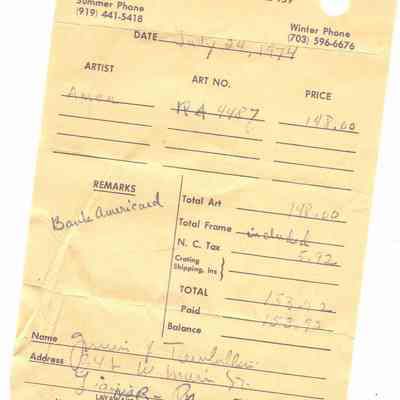 Summer Phone
(919) 441-5418
Winter Phone
(703) 596-6676
DATE July 24, 1974
ARTIST ART NO. PRICE
RA 4487 148.00
REMARKS
BankAmericard
Total Art 148.00
Total Frame included
N. C. Tax 5.92
Crating
Shipping, ins }
TOTAL 153.92
Paid 153.92
Balance
Name
Address W. Main St.